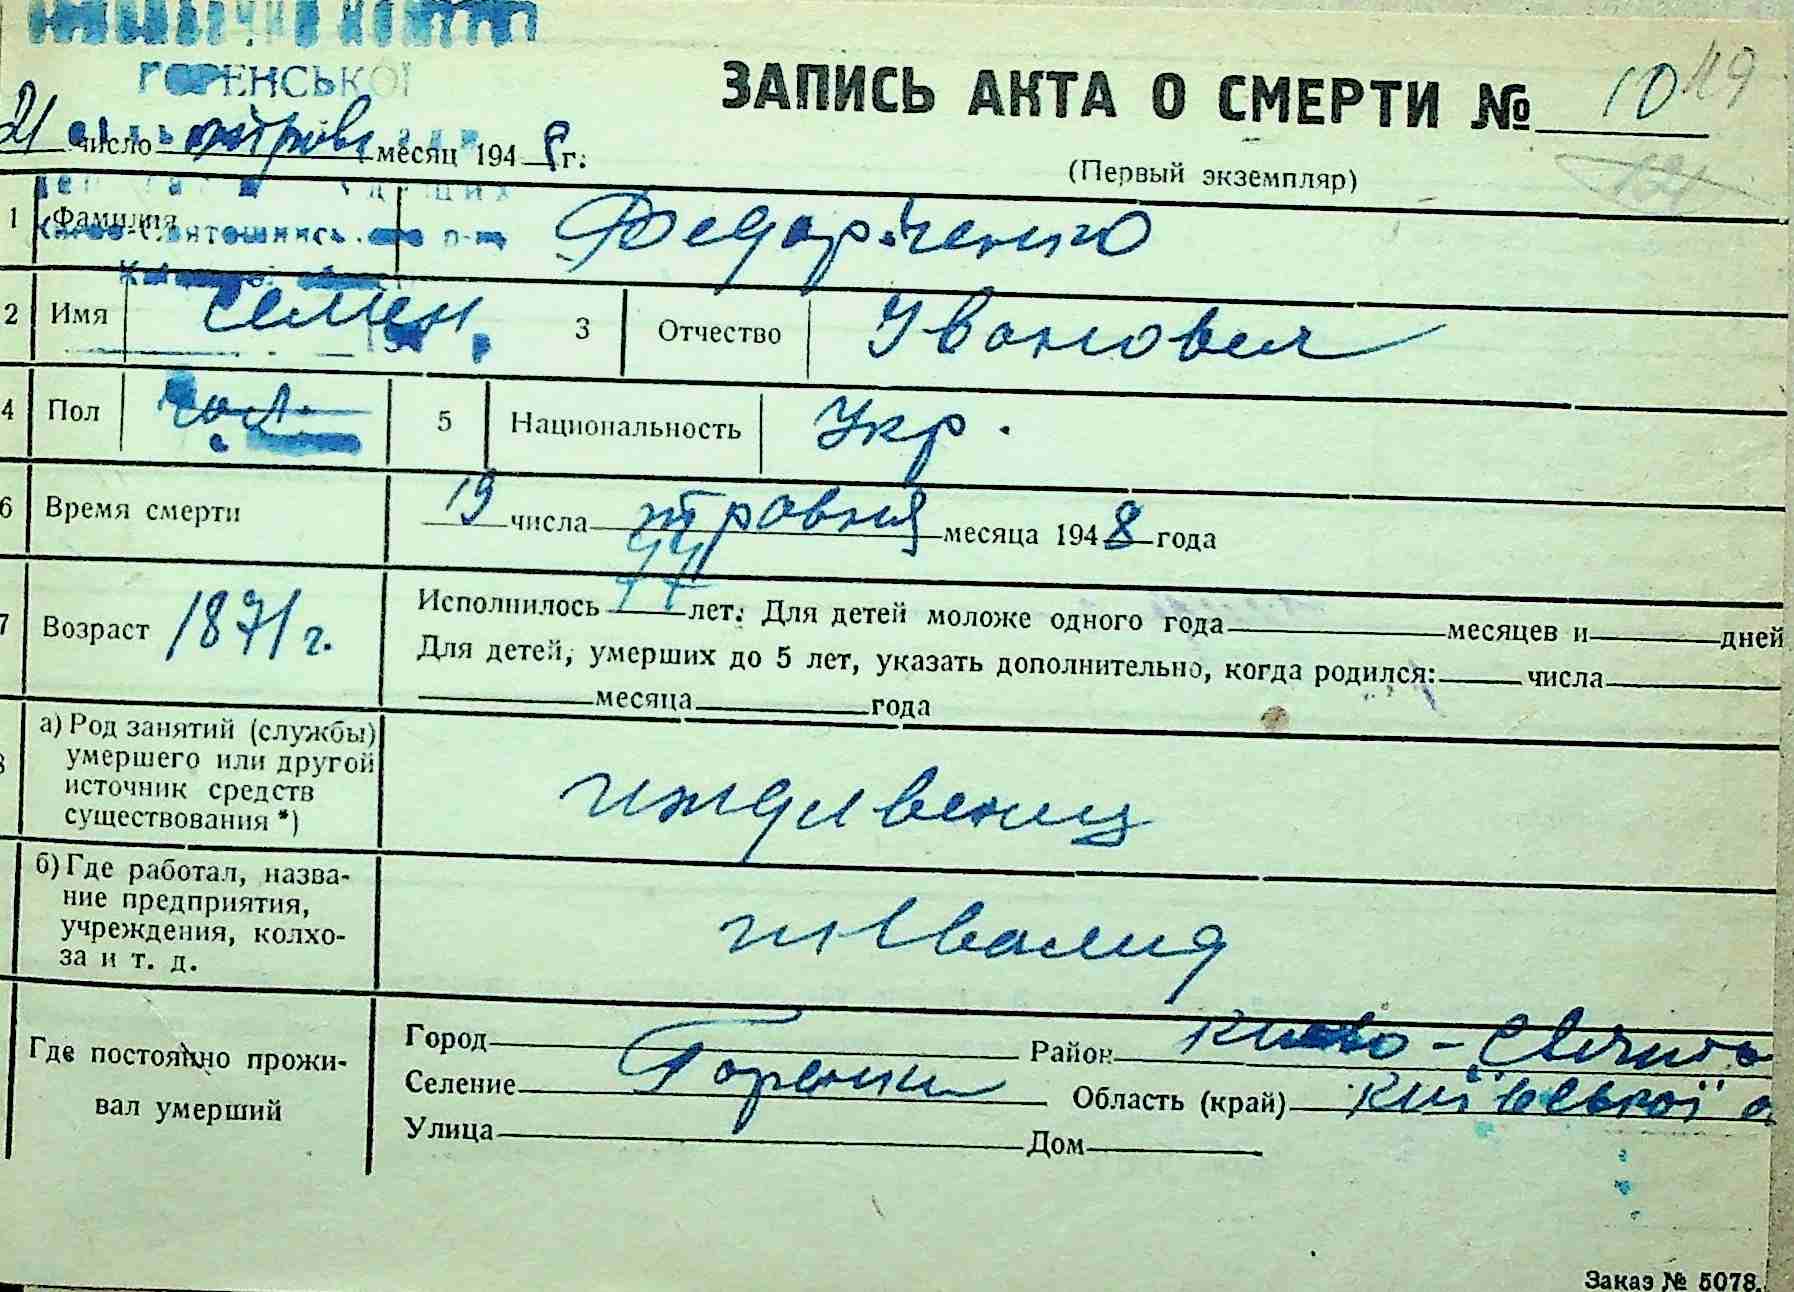 ВИКОНАВЧИЙ КОМІТЕТ
ГОРЕНСЬКОЇ
ЗАПИСЬ АКТА О СМЕРТИ № 10 119
21 число травня месяц 1948 г.
(Первый экземпляр)
1 Фамилия Федорченко
Києво-Святошинськ. р-ну
2 Имя Семен 3 Отчество Иванович
4 Пол чол. 5 Национальность Укр.
6 Время смерти 19 числа травня месяца 1948 года
7 Возраст 1871 г. Исполнилось 77 лет. Для детей моложе одного года месяцев и дней
Для детей, умерших до 5 лет, указать дополнительно, когда родился: числа
месяца года
8 а) Род занятий (службы) умершего или другой источник средств существования *) иждивенец
б) Где работал, название предприятия, учреждения, колхоза и т. д. инвалид
Где постоянно проживал умерший
Город Район Киево-Святош
Селение Горенки Область (край) Київської о
Улица Дом
Заказ № 5078.